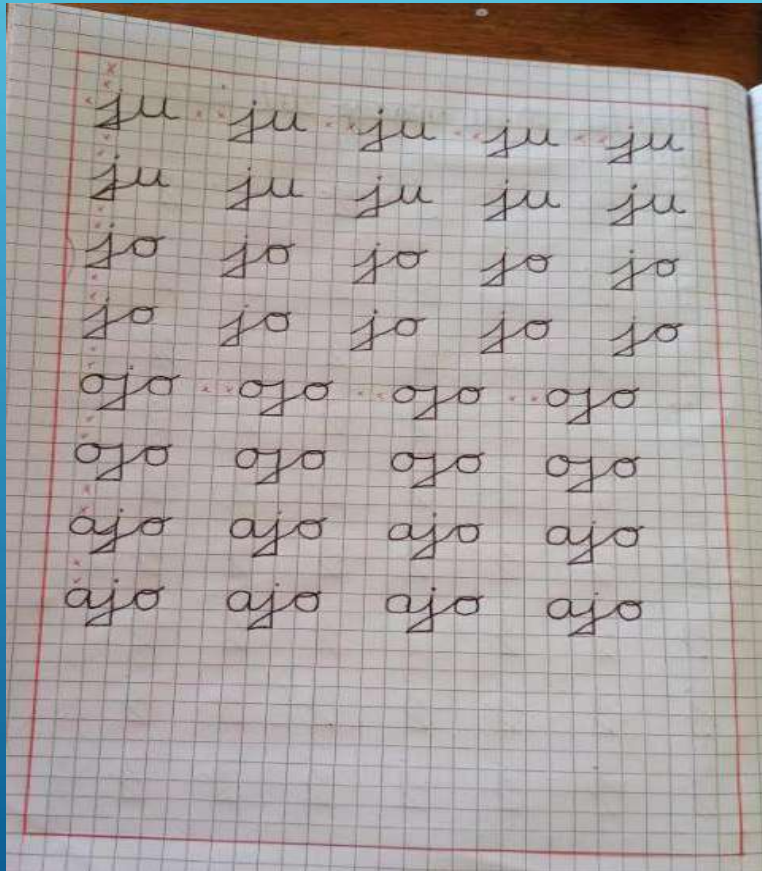 ju ju ju ju ju
ju ju ju ju ju
jo jo jo jo jo
jo jo jo jo jo
ojo ojo ojo ojo
ojo ojo ojo ojo
ajo ajo ajo ajo
ajo ajo ajo ajo